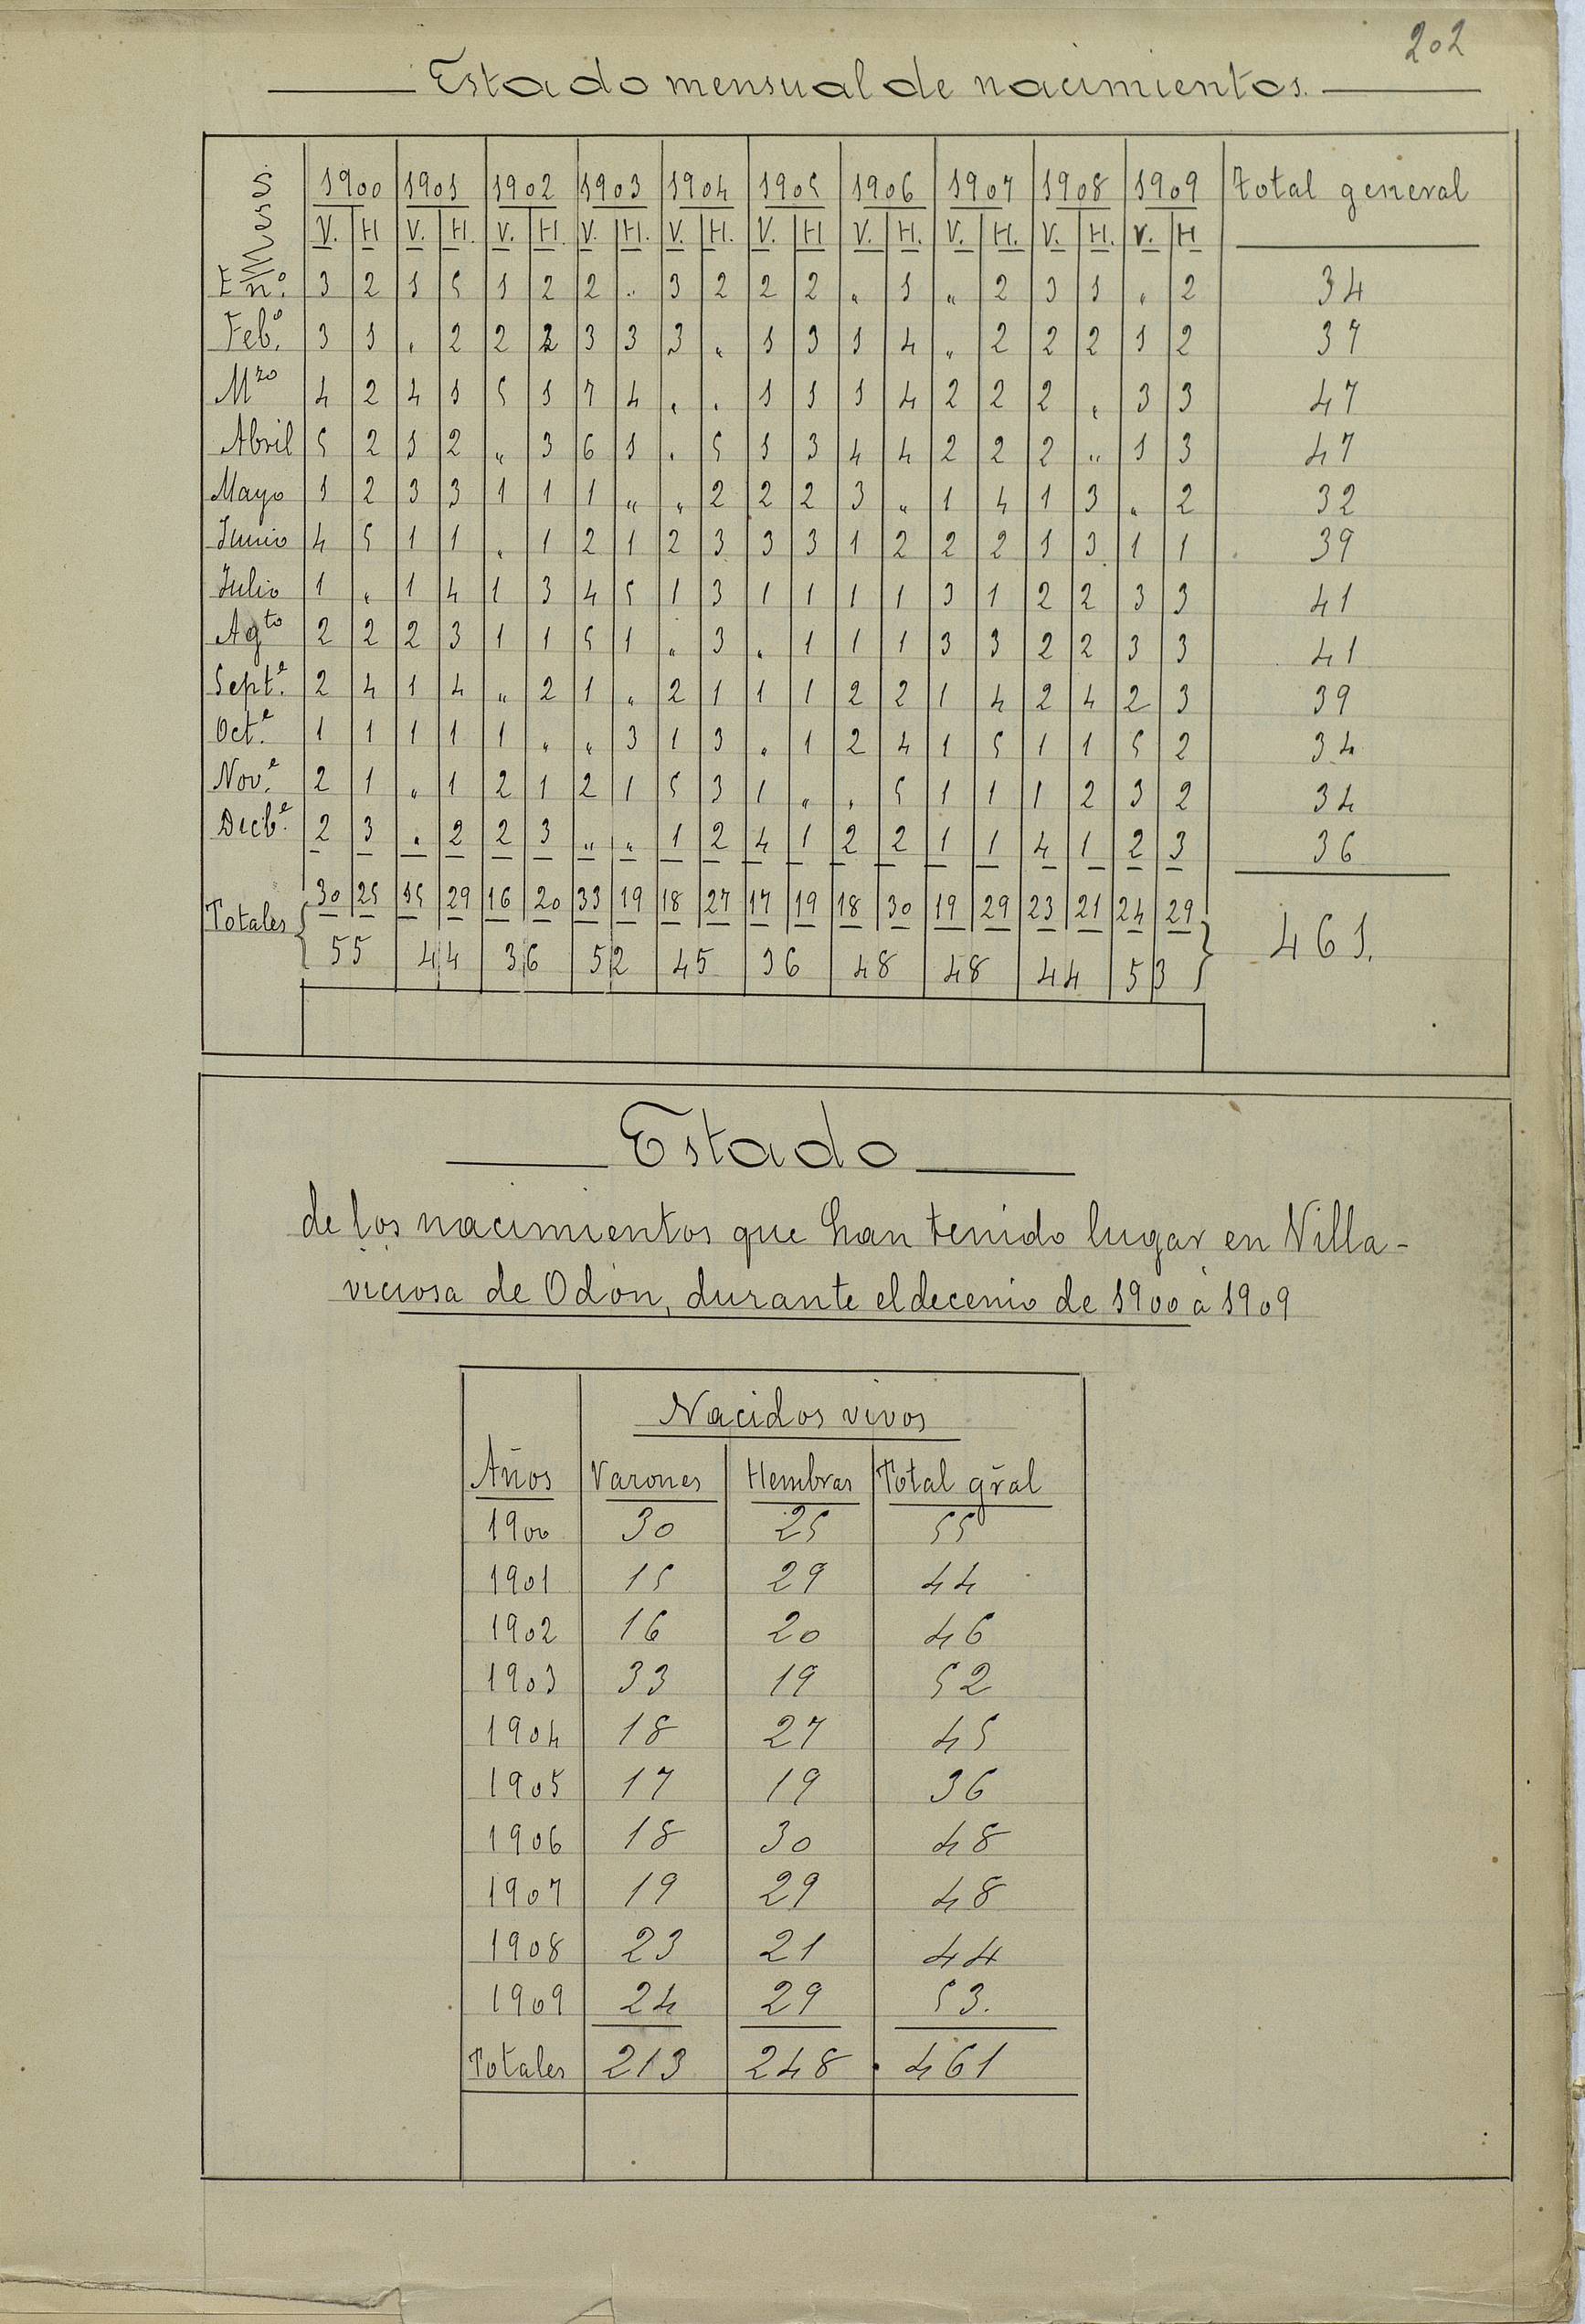 202
Estado mensual de nacimientos.
Meses 1900 1901 1902 1903 1904 1905 1906 1907 1908 1909 Total general
V. H V. H. V. H. V. H. V. H. V. H V. H. V. H. V. H. V. H
En.º 3 2 1 5 1 2 2 " 3 2 2 2 " 1 " 2 3 1 " 2 34
Feb.º 3 1 " 2 2 2 3 3 3 " 1 3 1 4 " 2 2 2 1 2 37
Mzo 4 2 4 1 5 1 7 4 " " 1 1 1 4 2 2 2 " 3 3 47
Abril 5 2 1 2 " 3 6 1 " 5 1 3 4 4 2 2 2 " 1 3 47
Mayo 1 2 3 3 1 1 1 " " 2 2 2 3 " 1 4 1 3 " 2 32
Junio 4 5 1 1 " 1 2 1 2 3 3 3 1 2 2 2 1 3 1 1 39
Julio 1 " 1 4 1 3 4 5 1 3 1 1 1 1 3 1 2 2 3 3 41
Agto 2 2 2 3 1 1 5 1 " 3 " 1 1 1 3 3 2 2 3 3 41
Sept.e 2 4 1 4 " 2 1 " 2 1 1 1 2 2 1 4 2 4 2 3 39
Oct.e 1 1 1 1 1 " " 3 1 3 " 1 2 4 1 5 1 1 5 2 34
Nov.e 2 1 " 1 2 1 2 1 5 3 1 " " 5 1 1 1 2 3 2 34
Dicb.e 2 3 " 2 2 3 " " 1 2 4 1 2 2 1 1 4 1 2 3 36
Totales 30 25 15 29 16 20 33 19 18 27 17 19 18 30 19 29 23 21 24 29
55 44 36 52 45 36 48 48 44 53 461.
Estado
de los nacimientos que han tenido lugar en Villa-
viciosa de Odón, durante el decenio de 1900 á 1909
Nacidos vivos
Años Varones Hembras Total gral
1900 30 25 55
1901 15 29 44
1902 16 20 46
1903 33 19 52
1904 18 27 45
1905 17 19 36
1906 18 30 48
1907 19 29 48
1908 23 21 44
1909 24 29 53.
Totales 213 248 461